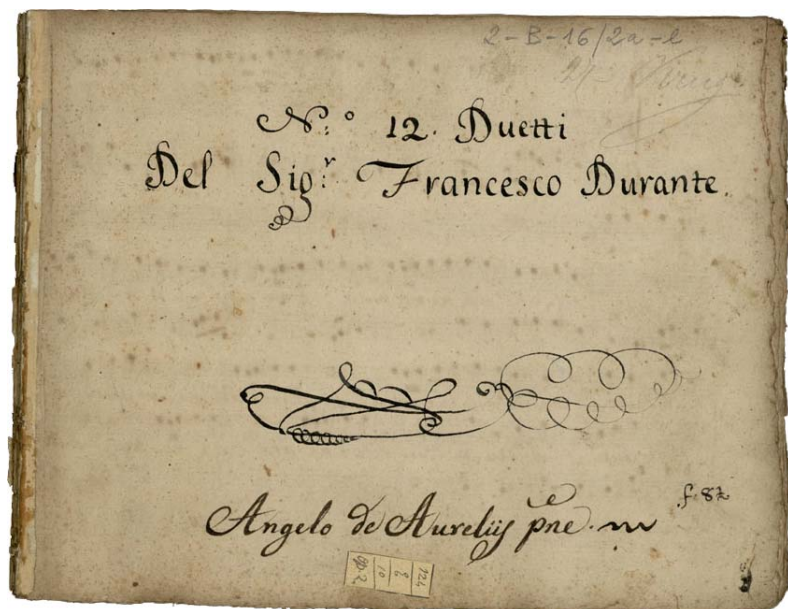 2-B-16/2a-l
N.º 12. Duetti
Del Sig.r Francesco Durante.
Angelo de Aurelijs pne.
f. 82
124
6
10